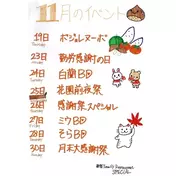 11月のイベント
19日 ボジョレヌーボ
Thursday
23日 勤労感謝の日
Monday
24日 白蘭BD
Tuesday
25日 花園前夜祭
26日 感謝祭スペシャル
Thursday
27日 ミウBD
28日 そらBD
30日 月末大感謝祭